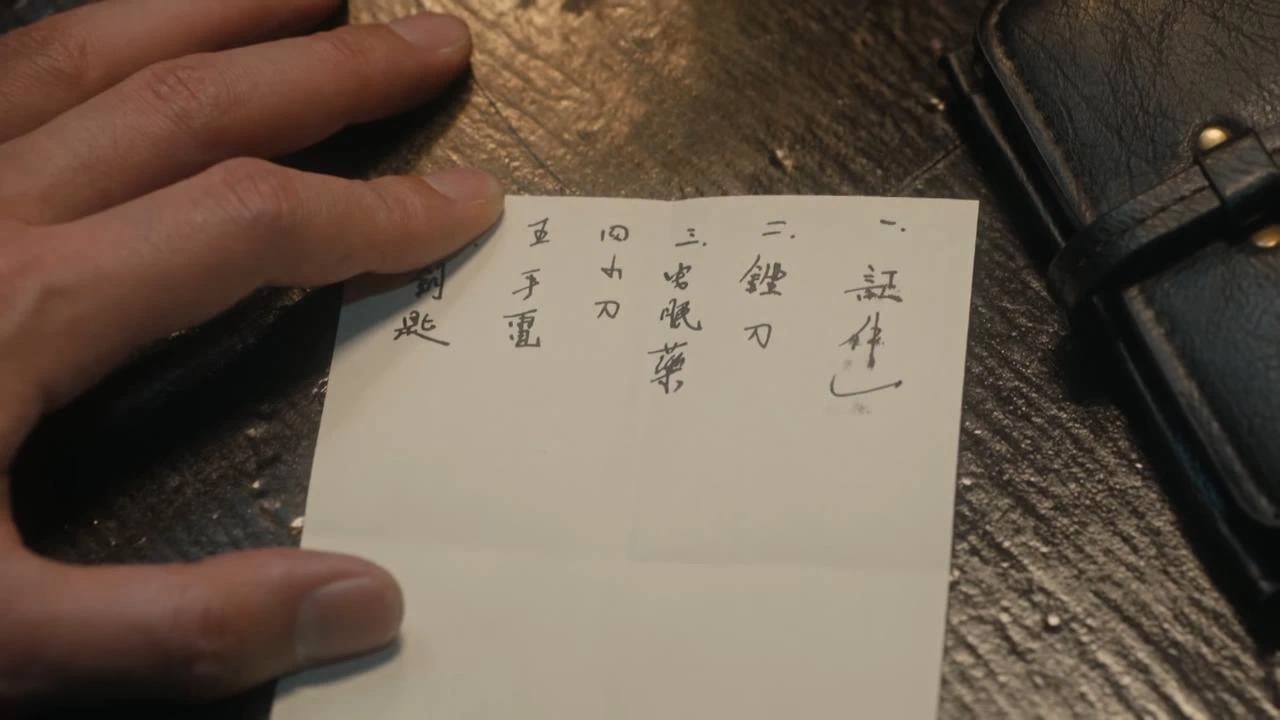 一. 証件
二. 銼刀
三. 安眠藥
四 小刀
五 手電
匙